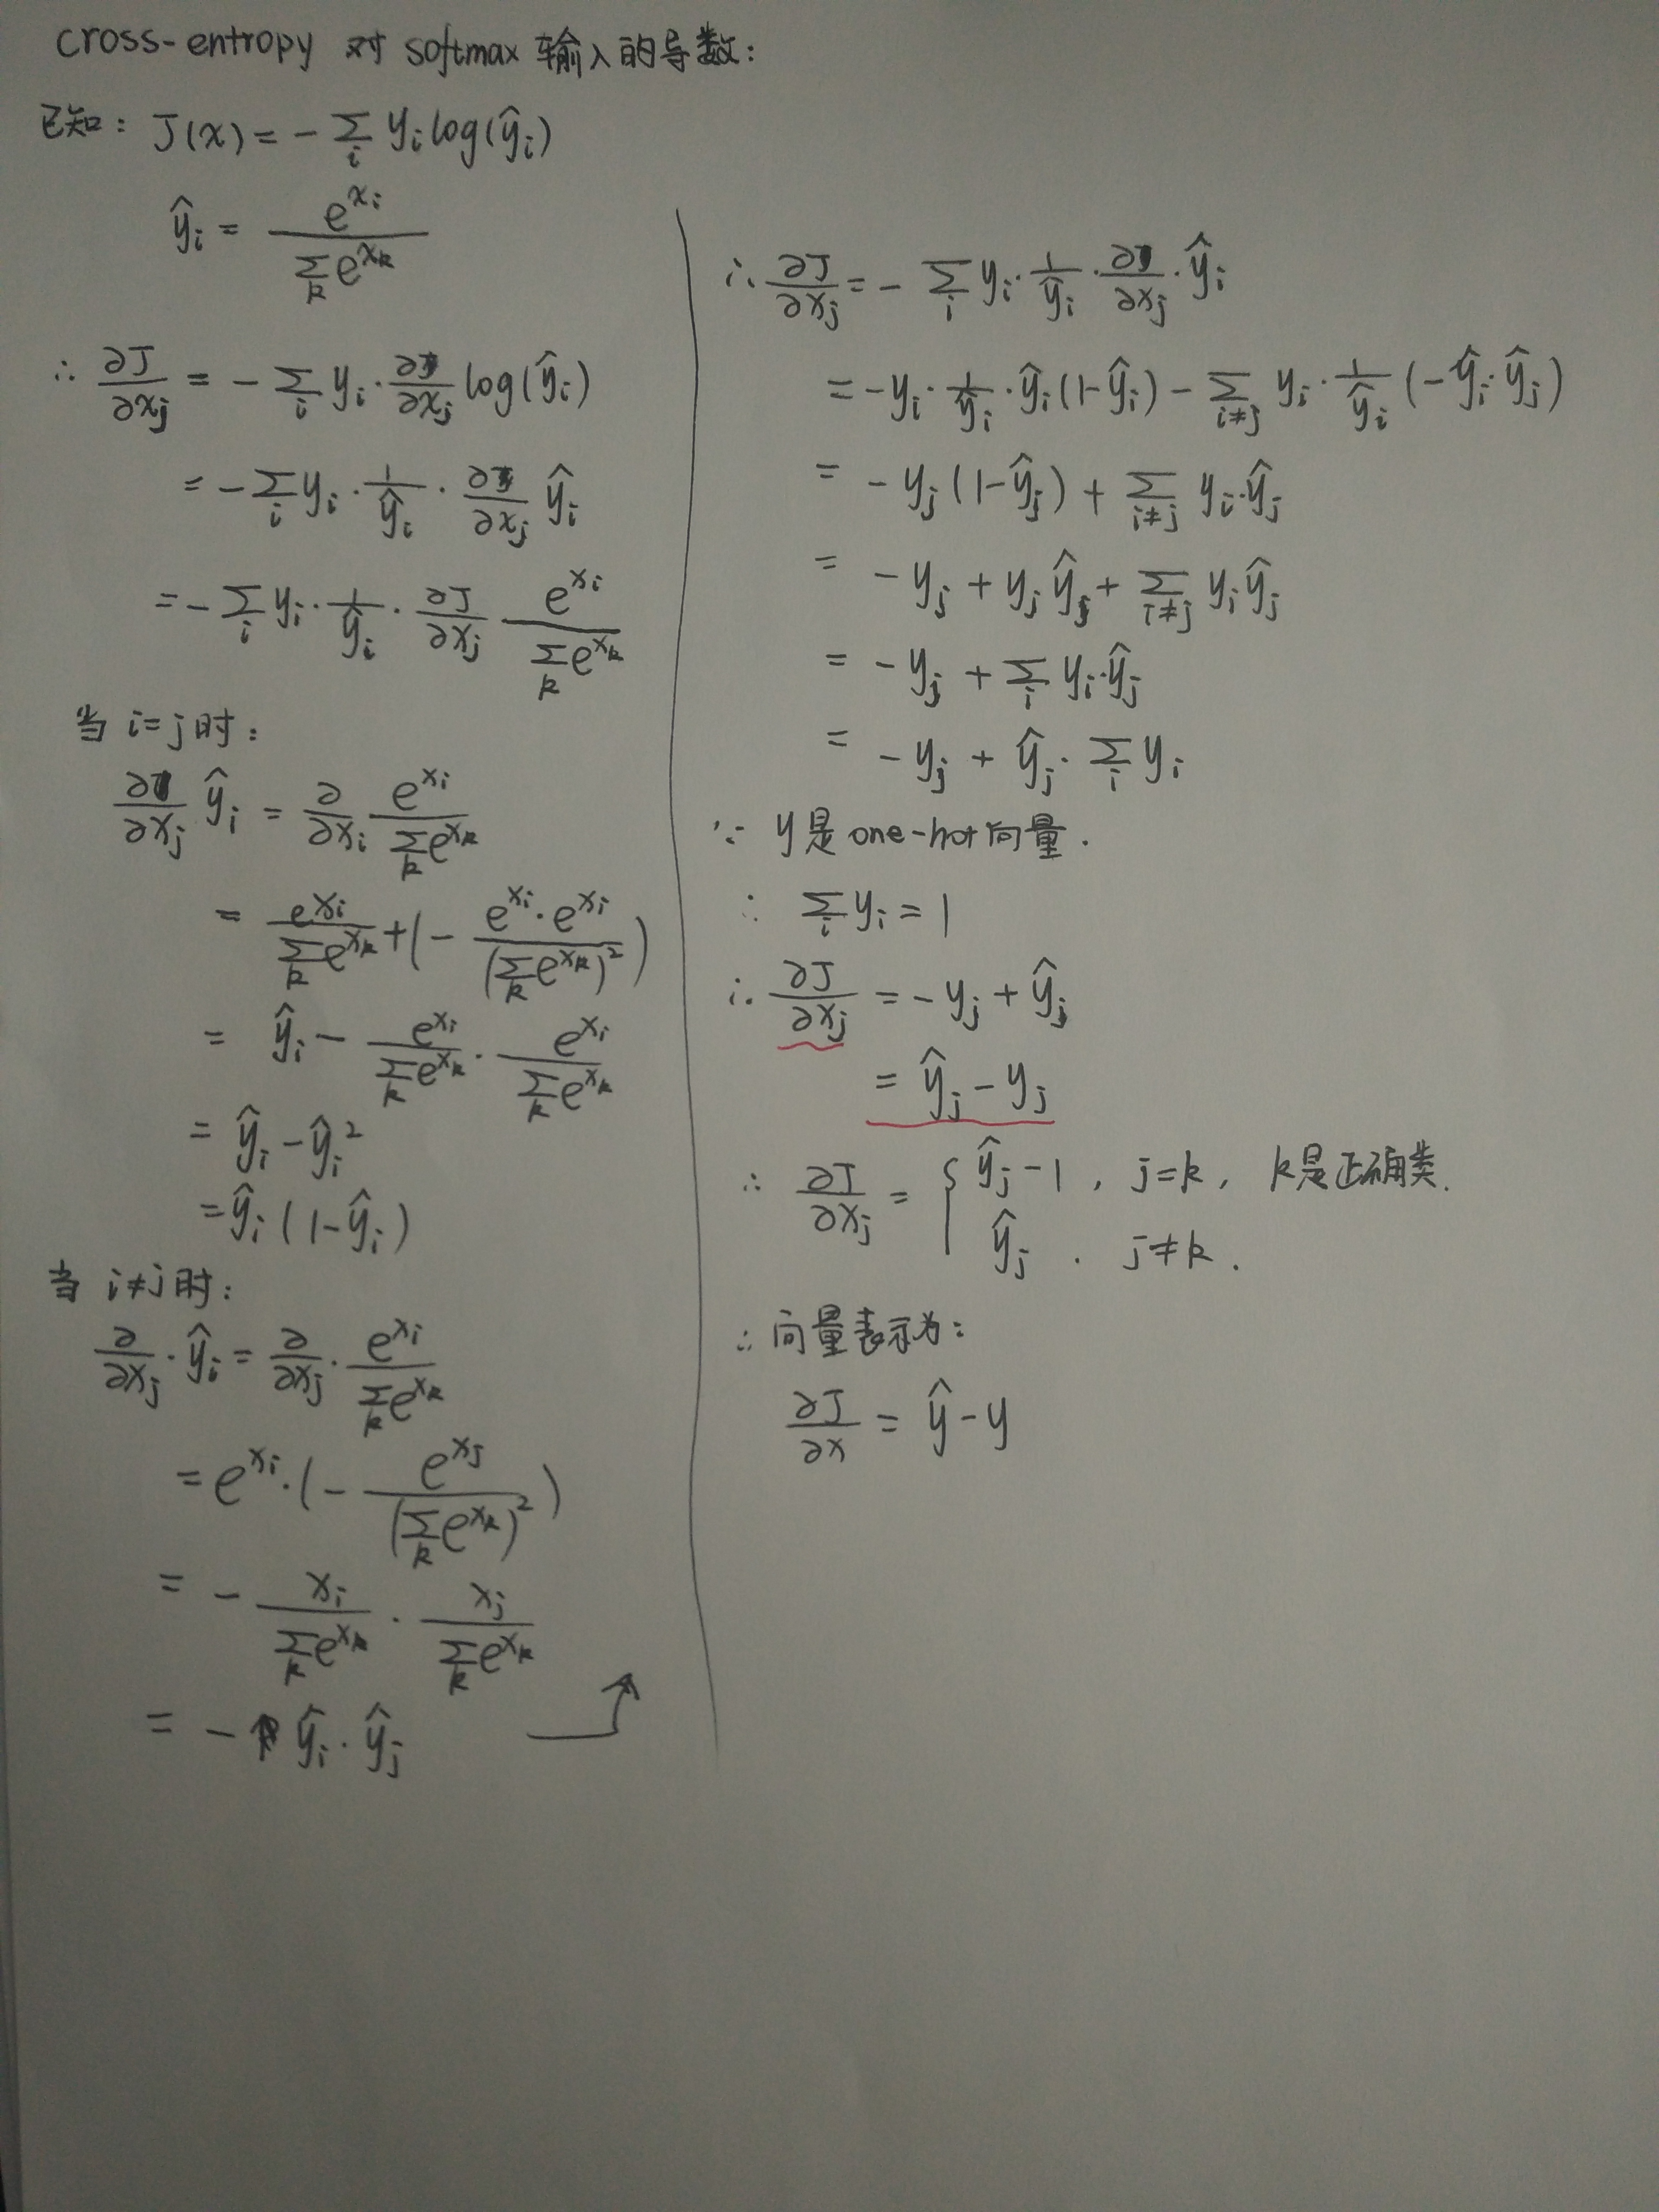 cross-entropy 对 softmax 输入的导数:
已知: J(x) = - Σ_i y_i log(ŷ_i)
ŷ_i = e^{x_i} / Σ_k e^{x_k}
∴ ∂J/∂x_j = - Σ_i y_i · ∂J/∂x_j log(ŷ_i)
= - Σ_i y_i · 1/ŷ_i · ∂J/∂x_j ŷ_i
= - Σ_i y_i · 1/ŷ_i · ∂J/∂x_j e^{x_i} / Σ_k e^{x_k}
当 i=j 时:
∂/∂x_j ŷ_i = ∂/∂x_i e^{x_i} / Σ_k e^{x_k}
= e^{x_i} / Σ_k e^{x_k} + (- e^{x_i} · e^{x_i} / (Σ_k e^{x_k})²)
= ŷ_i - e^{x_i} / Σ_k e^{x_k} · e^{x_i} / Σ_k e^{x_k}
= ŷ_i - ŷ_i²
= ŷ_i (1-ŷ_i)
当 i≠j 时:
∂/∂x_j · ŷ_i = ∂/∂x_j · e^{x_i} / Σ_k e^{x_k}
= e^{x_i} · (- e^{x_j} / (Σ_k e^{x_k})²)
= - x_i / Σ_k e^{x_k} · x_j / Σ_k e^{x_k}
= - ŷ_i · ŷ_j
∴ ∂J/∂x_j = - Σ_i y_i · 1/ŷ_i · ∂/∂x_j · ŷ_i
= -y_i · 1/ŷ_i · ŷ_i (1-ŷ_i) - Σ_{i≠j} y_i · 1/ŷ_i (-ŷ_i · ŷ_j)
= -y_j (1-ŷ_j) + Σ_{i≠j} y_i · ŷ_j
= -y_j + y_j ŷ_j + Σ_{i≠j} y_i ŷ_j
= -y_j + Σ_i y_i · ŷ_j
= -y_j + ŷ_j · Σ_i y_i
∵ y是one-hot向量.
∴ Σ_i y_i = 1
∴ ∂J/∂x_j = -y_j + ŷ_j
= ŷ_j - y_j
∴ ∂J/∂x_j = { ŷ_j - 1, j=k, k是正确类.
ŷ_j . j≠k.
∴ 向量表示为:
∂J/∂x = ŷ - y